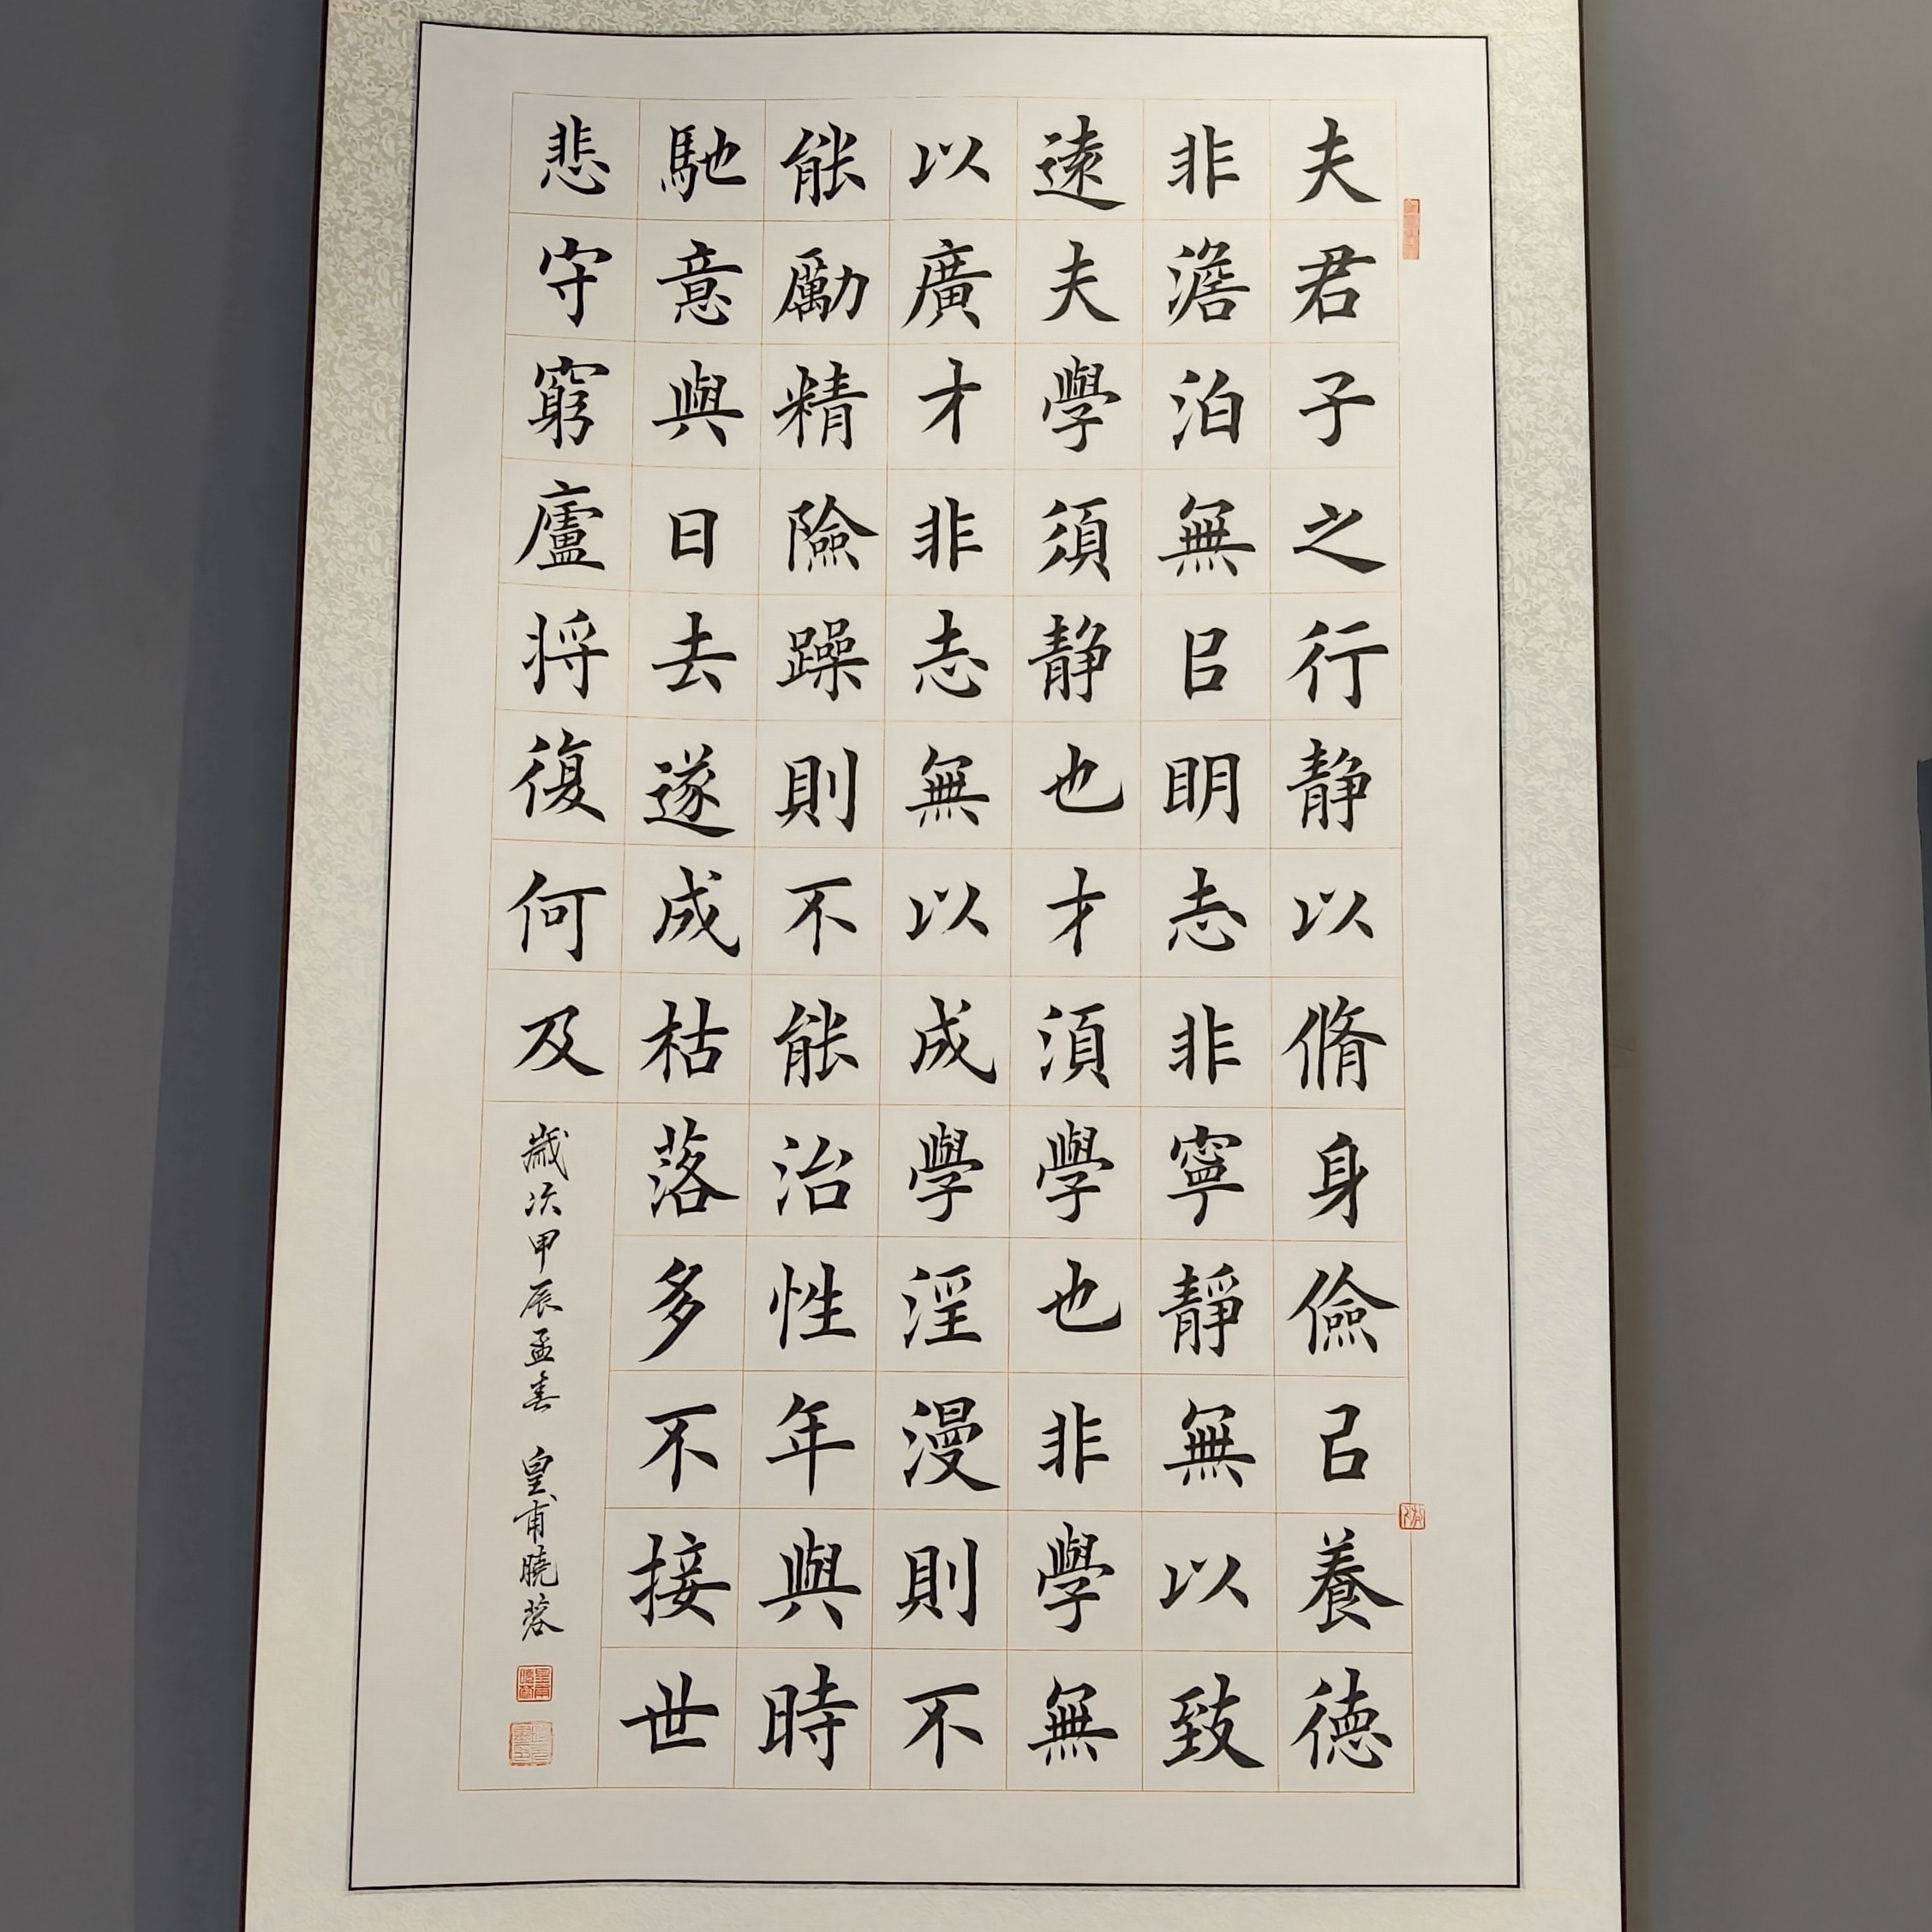 夫君子之行静以脩身儉㠯養德
非澹泊無㠯眀志非寧靜無以致
遠夫學須静也才湏學也非學無
以廣才非志無以成學淫漫則不
能勵精險躁則不能治性年與時
馳意與日去遂成枯落多不接世
悲守窮廬将復何及
歲次甲辰孟春 皇甫曉蓉